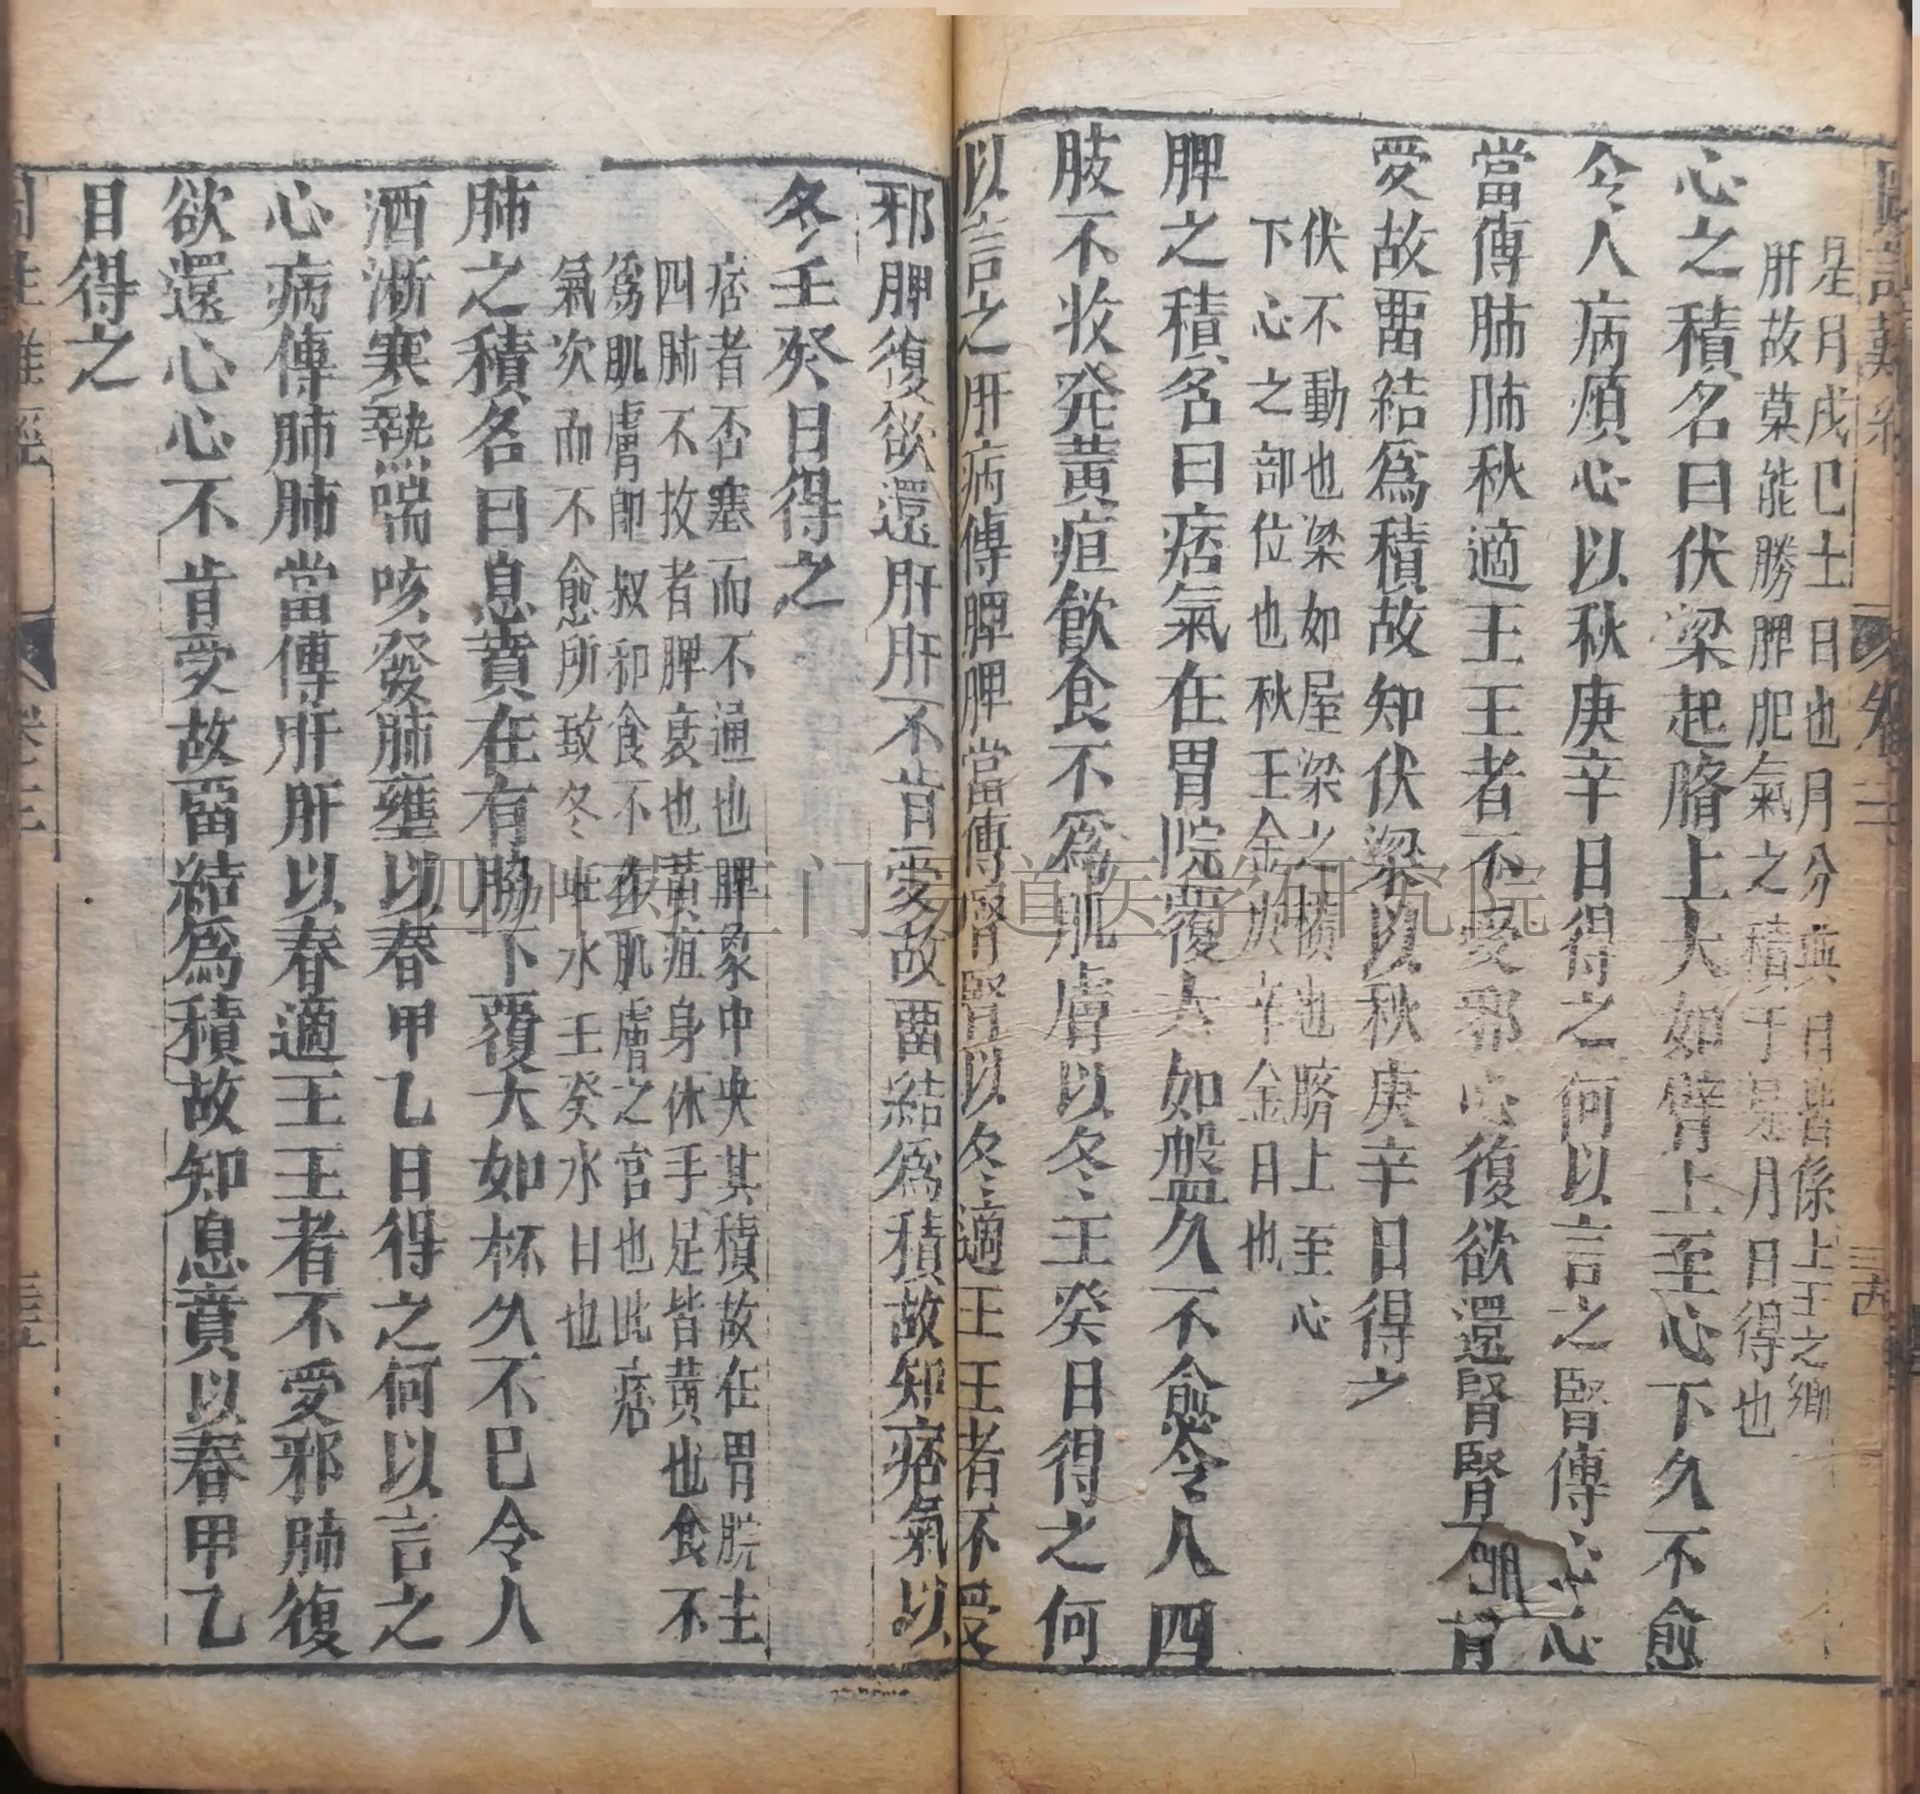 是月戌巳土日也月分與日皆係上王之鄉
肝故莫能勝脾肥氣之積于是月日得也
心之積名曰伏梁起臍上大如臂上至心下久不愈
令人病煩心以秋庚辛日得之何以言之腎傳心心
當傳肺肺秋適王王者不受邪心復欲還腎腎不肯
受故畱結爲積故知伏梁以秋庚辛日得之
伏不動也梁如屋梁之橫也臍上至心
下心之部位也秋王金於辛金日也
脾之積名曰痞氣在胃脘覆大如盤久不愈令人四
肢不收発黃疸飲食不爲肌膚以冬壬癸日得之何
以言之肝病傳脾脾當傳腎腎以冬適王王者不受
邪脾復欲還肝肝不肯受故畱結爲積故知痞氣以
冬壬癸日得之
痞者否塞而不通也脾象中央其積故在胃脘主
四肺不收者脾衰也黃疸身体手足皆黄也食不
爲肌膚卽叔和食不作肌膚之宫也此痞
氣次而不愈所致冬旺水王癸水日也
肺之積名曰息賁在右脇下覆大如杯久不已令人
洒淅寒熱喘咳發肺壅以春甲乙日得之何以言之
心病傳肺肺當傳肝肝以春適王王者不受邪肺復
欲還心心不肯受故畱結爲積故知息賁以春甲乙
日得之
卷三
三五
四州药王门易道医学研究院